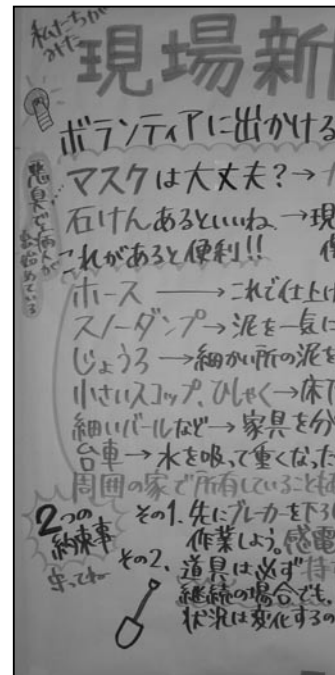 私たちがみた
現場新
ボランティアに出かける
悪臭で病人が出始めている
マスクは大丈夫?→
石けんあるといいね→現
これがあると便利!!
ホース→これで仕上げ
スノーダンプ→泥を一気に
じょうろ→細かい所の泥を
小さいスコップ、ひしゃく→床下
細いバールなど→家具を分
台車→水を吸って重くなった
周囲の家で所有していることも
2つの約束事
守ってね
その1. 先にブレーカーを下ろし
作業しよう。感電
その2、道具は必ず持
継続の場合でも、
状況は変化するの